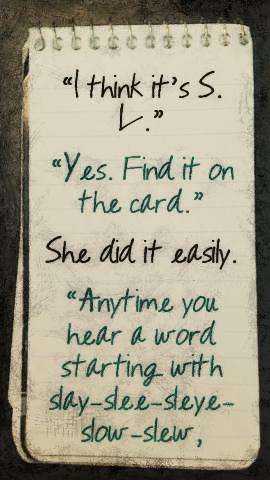 “I think it’s S.
L.”
“Yes. Find it on
the card.”
She did it easily.
“Anytime you
hear a word
starting with
slay-slee-sleye-
slow-slew,